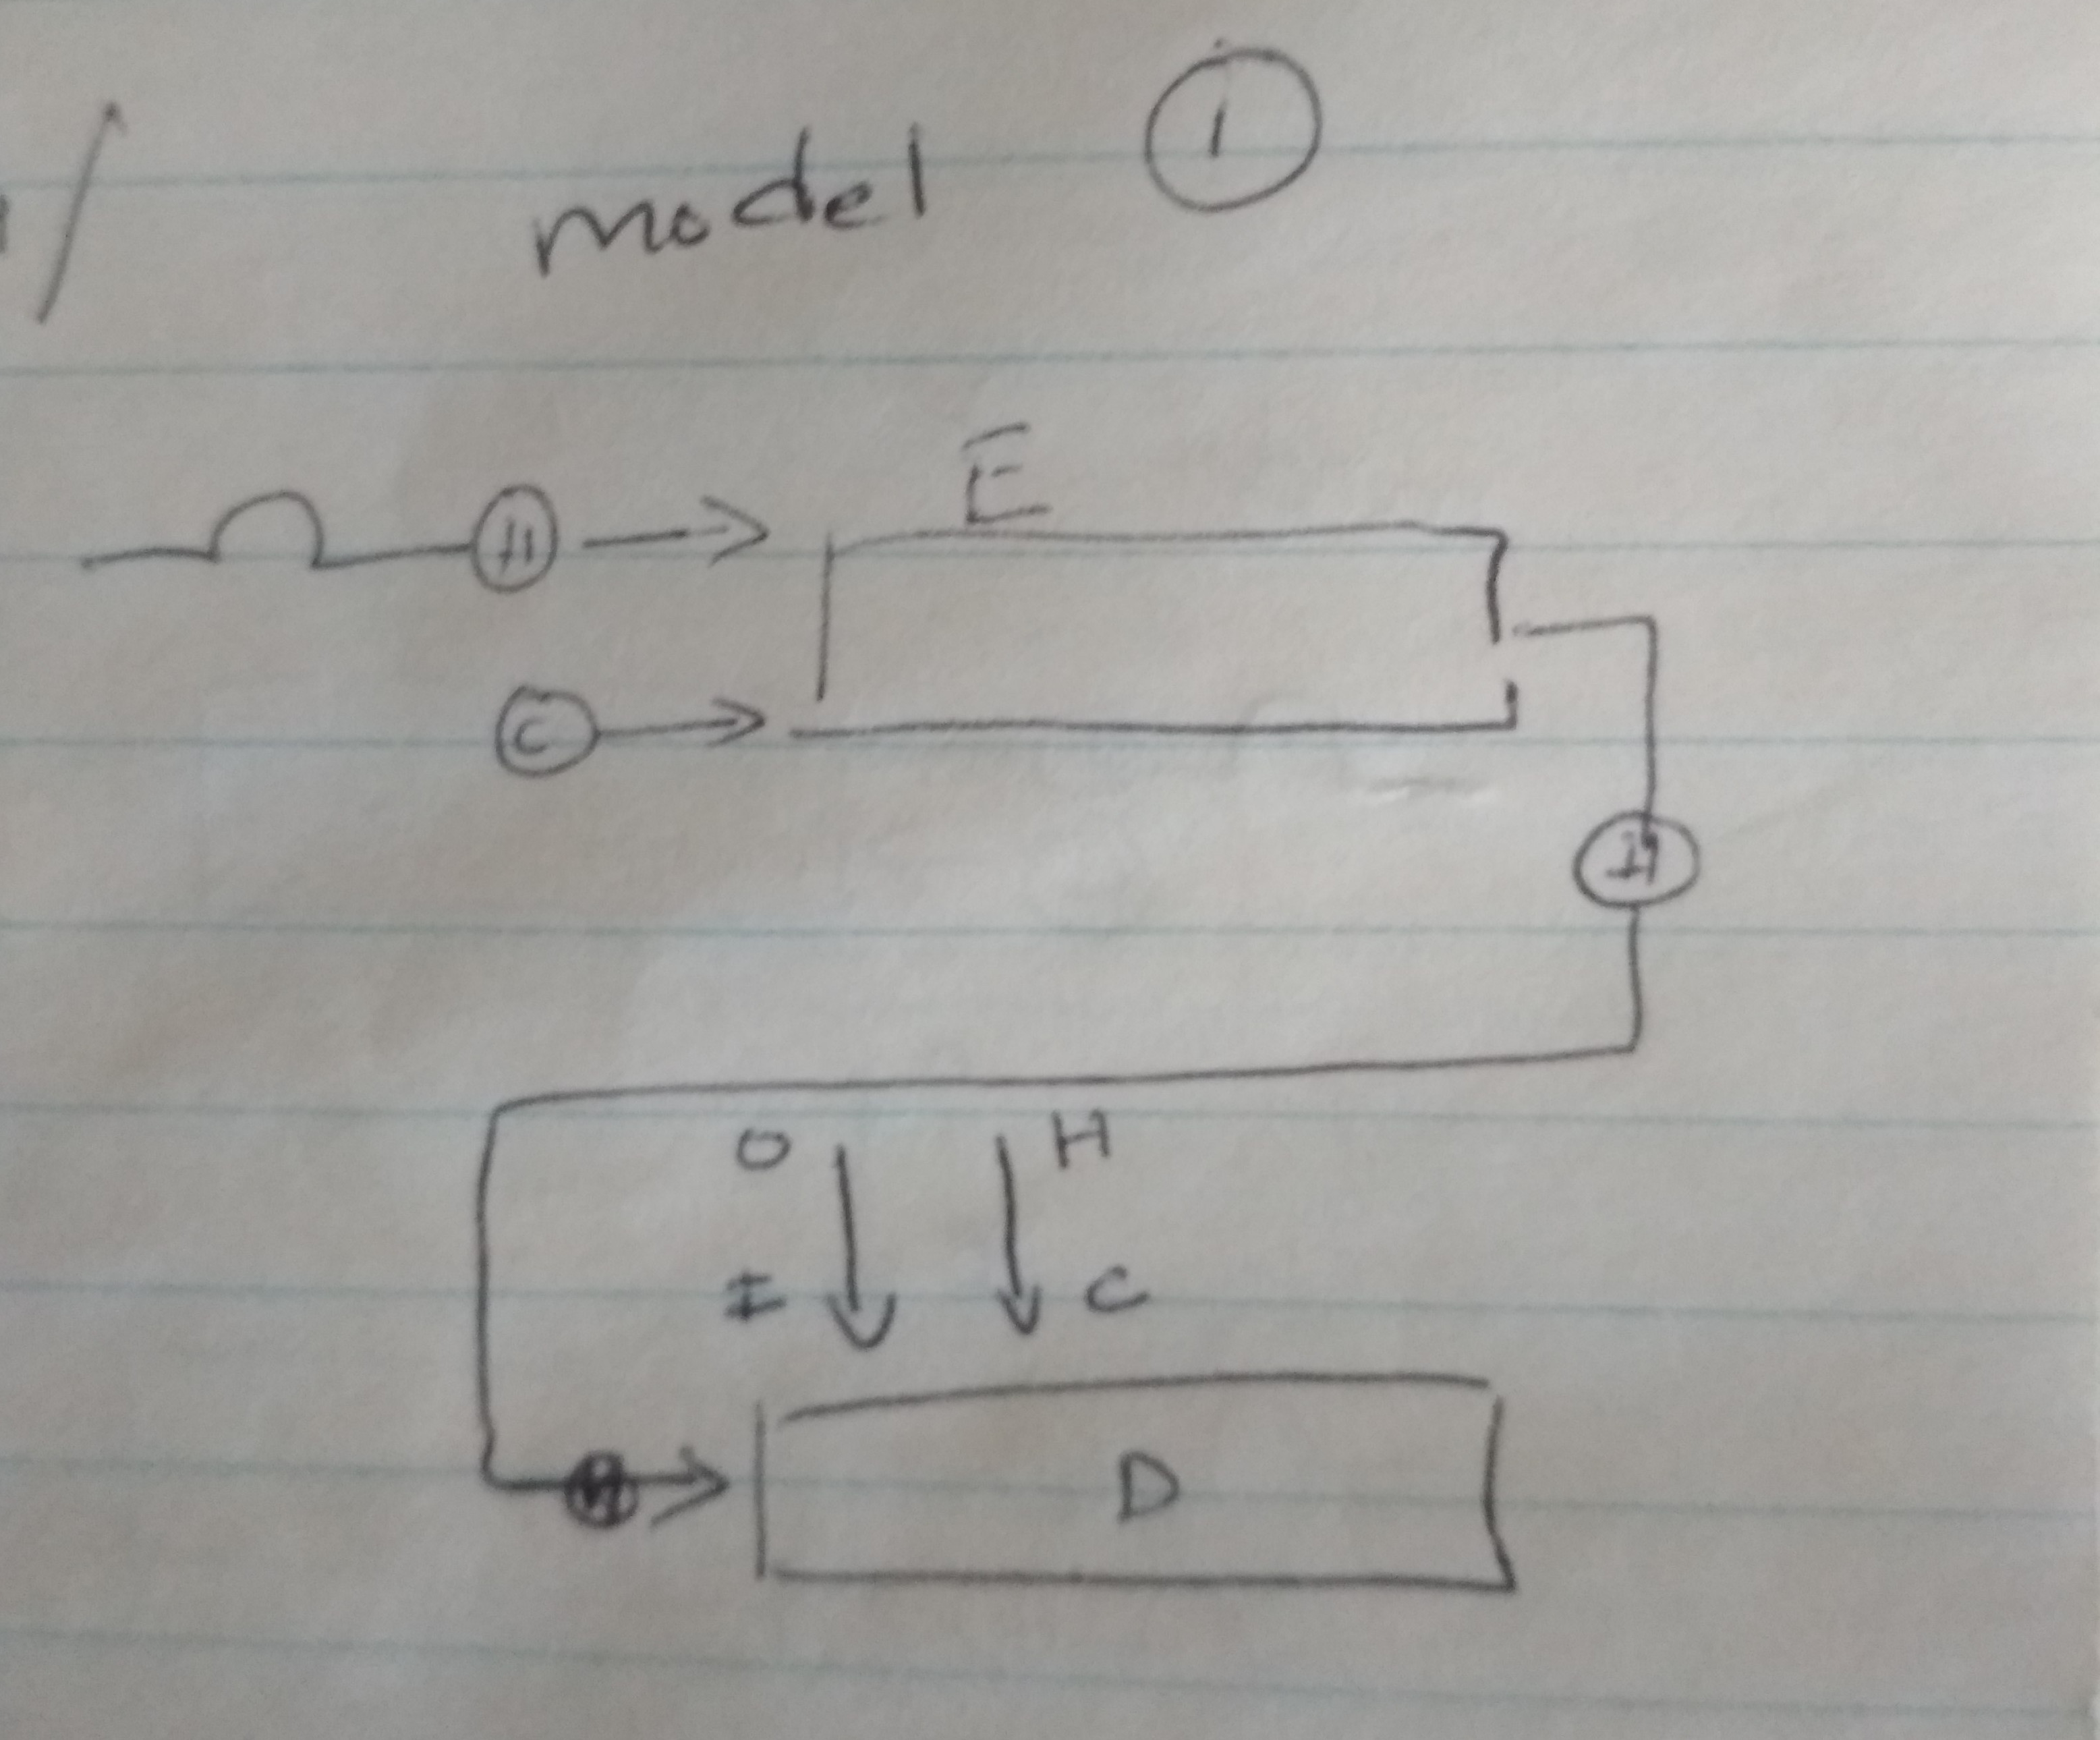 model 1
E
H
C
H
O H
I C
D